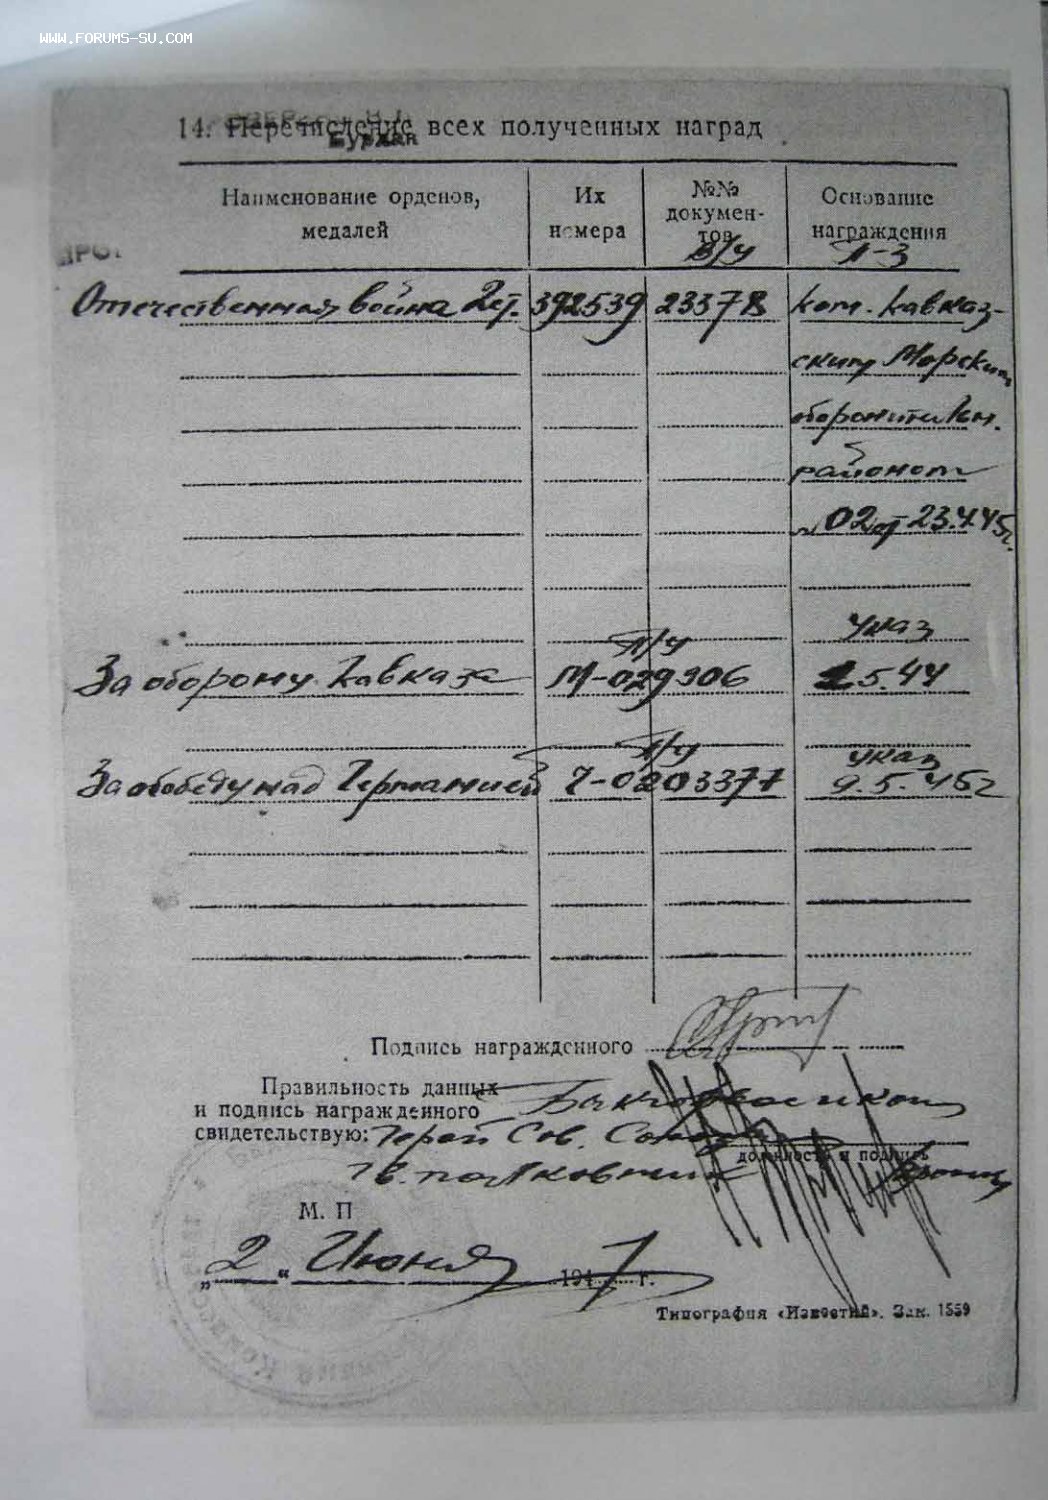 WWW.FORUMS-SU.COM
14. Перечисление всех полученных наград
Бурхан
Наименование орденов, медалей
Их номера
№№ документов
В/у
Основание награждения
Л-3
Отечественная война 2 ст. 392539 233778 ком. Кавказ-
ским Морским
оборонительн.
районом
02 от 23.4.45г.
Л/у Указ
За оборону Кавказа М-029906 1.5.44
Л/у Указ
За победу над Германией Г-0203377 9.5.45г
Подпись награжденного
Правильность данных
и подпись награжденного
свидетельствую: Герой Сов. Союза
должность и подпись
Гв. полковник
М. П
„2“ Июня 1947 г.
Типография «Известий». Зак. 1559